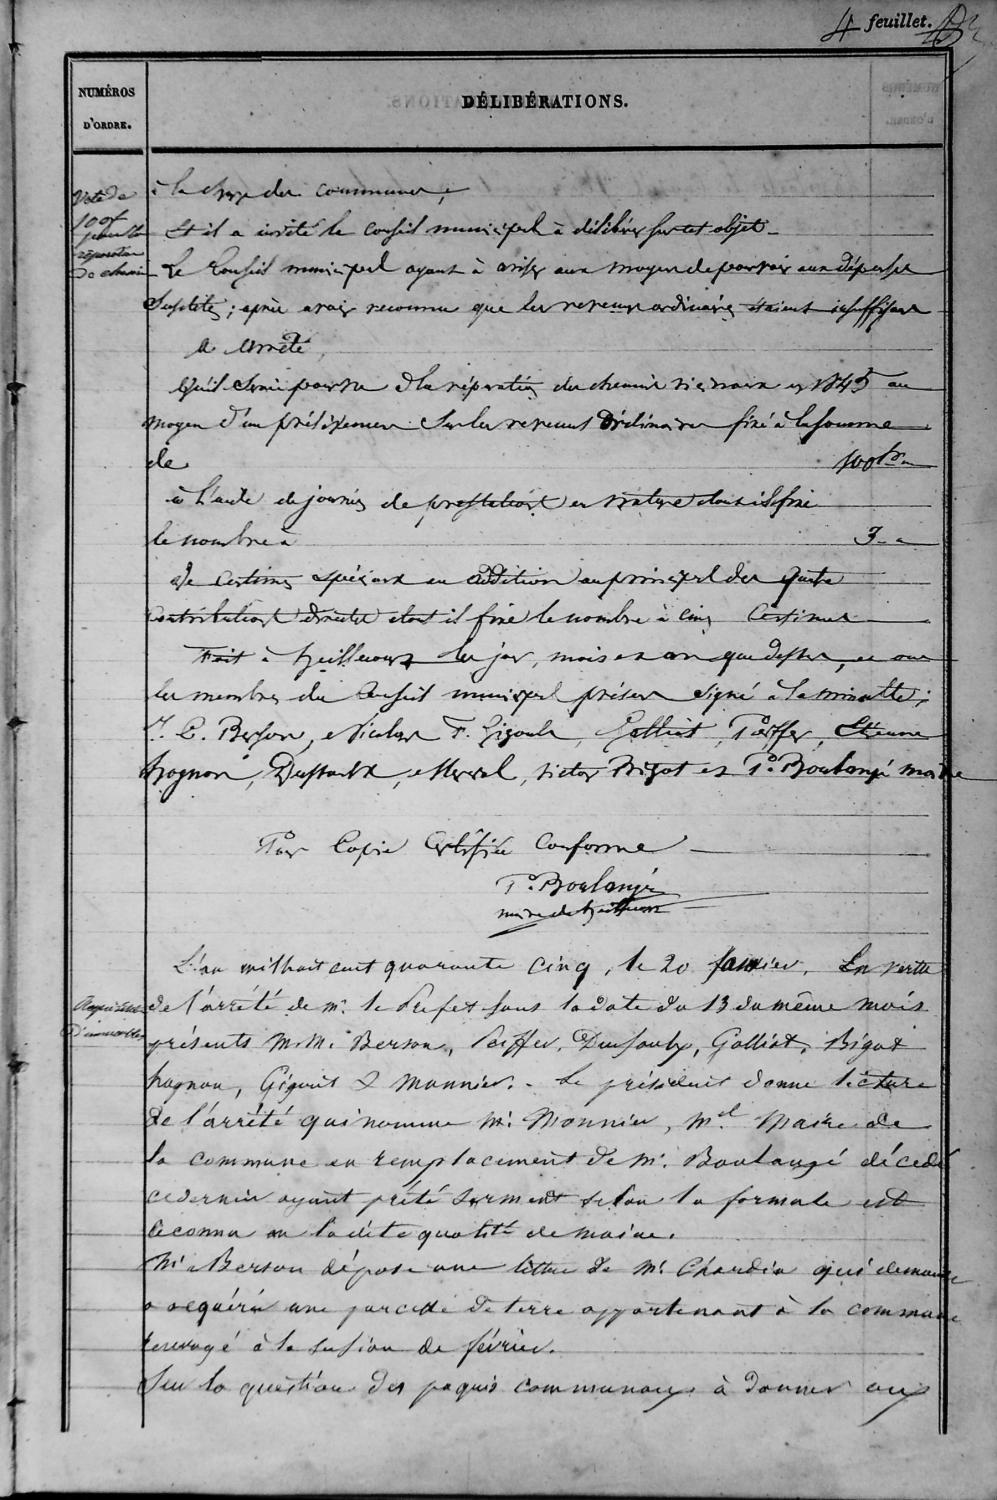 4 feuillet.
NUMÉROS
D'ORDRE.
DÉLIBÉRATIONS.
Vote de
100f
pour la
réparation
de chemin
à la charge des communes,
Et il a invité le Conseil municipal à délibérer sur cet objet.
Le Conseil municipal ayant à aviser aux moyens de pourvoir aux dépenses
Susdites; après avoir reconnu que les revenus ordinaires étaient insuffisans
A arrêté,
Qu'il sera pourvu à la réparation des chemins vicinaux en 1845 au
moyen d'un prélèvement sur les revenus Ordinaires fixé à la somme
de 100 fr
à l'aide de journées de prestations en nature dont il fixe
le nombre à 3
de Centimes spéciaux en addition au principal des quatre
Contributions directes dont il fixe le nombre à cinq Centimes
Fait à heillecourt les jour, mois et an que dessus, et ont
les membres du Conseil municipal présens signé à la minutte;
Berson, Nicolas F. Gigoult, Galliot, Peiffer, Etienne
hognon, Dussaulx, Victor Bigot et Boulangé maire
Pour Copie Certifiée Conforme
Boulangé
maire de heillecourt
L'an mil huit cent quarante cinq, le 20 janvier. En vertu
Acquisition
D'immeubles
de l'arrêté de Mr le Préfet sous la date du 13 du même mois
présents M.M. Berson, Peiffer, Dussaulx, Galliot, Bigot
hognon, Gigout & Monnier. - Le président donne lecture
de l'arrêté qui nomme Mr Monnier, Mel Maire de
la commune en remplacement de Mr. Boulangé décedé
ce dernier ayant prêté serment selon la formule est
reconnu en la dite qualité de maire.
Mr Berson dépose une lettre de Mr Chardin qui demande
a acquérir une parcelle de terre appartenant à la commune
renvoyé à la session de février.
Sur la question des paquis communaux à donner aux